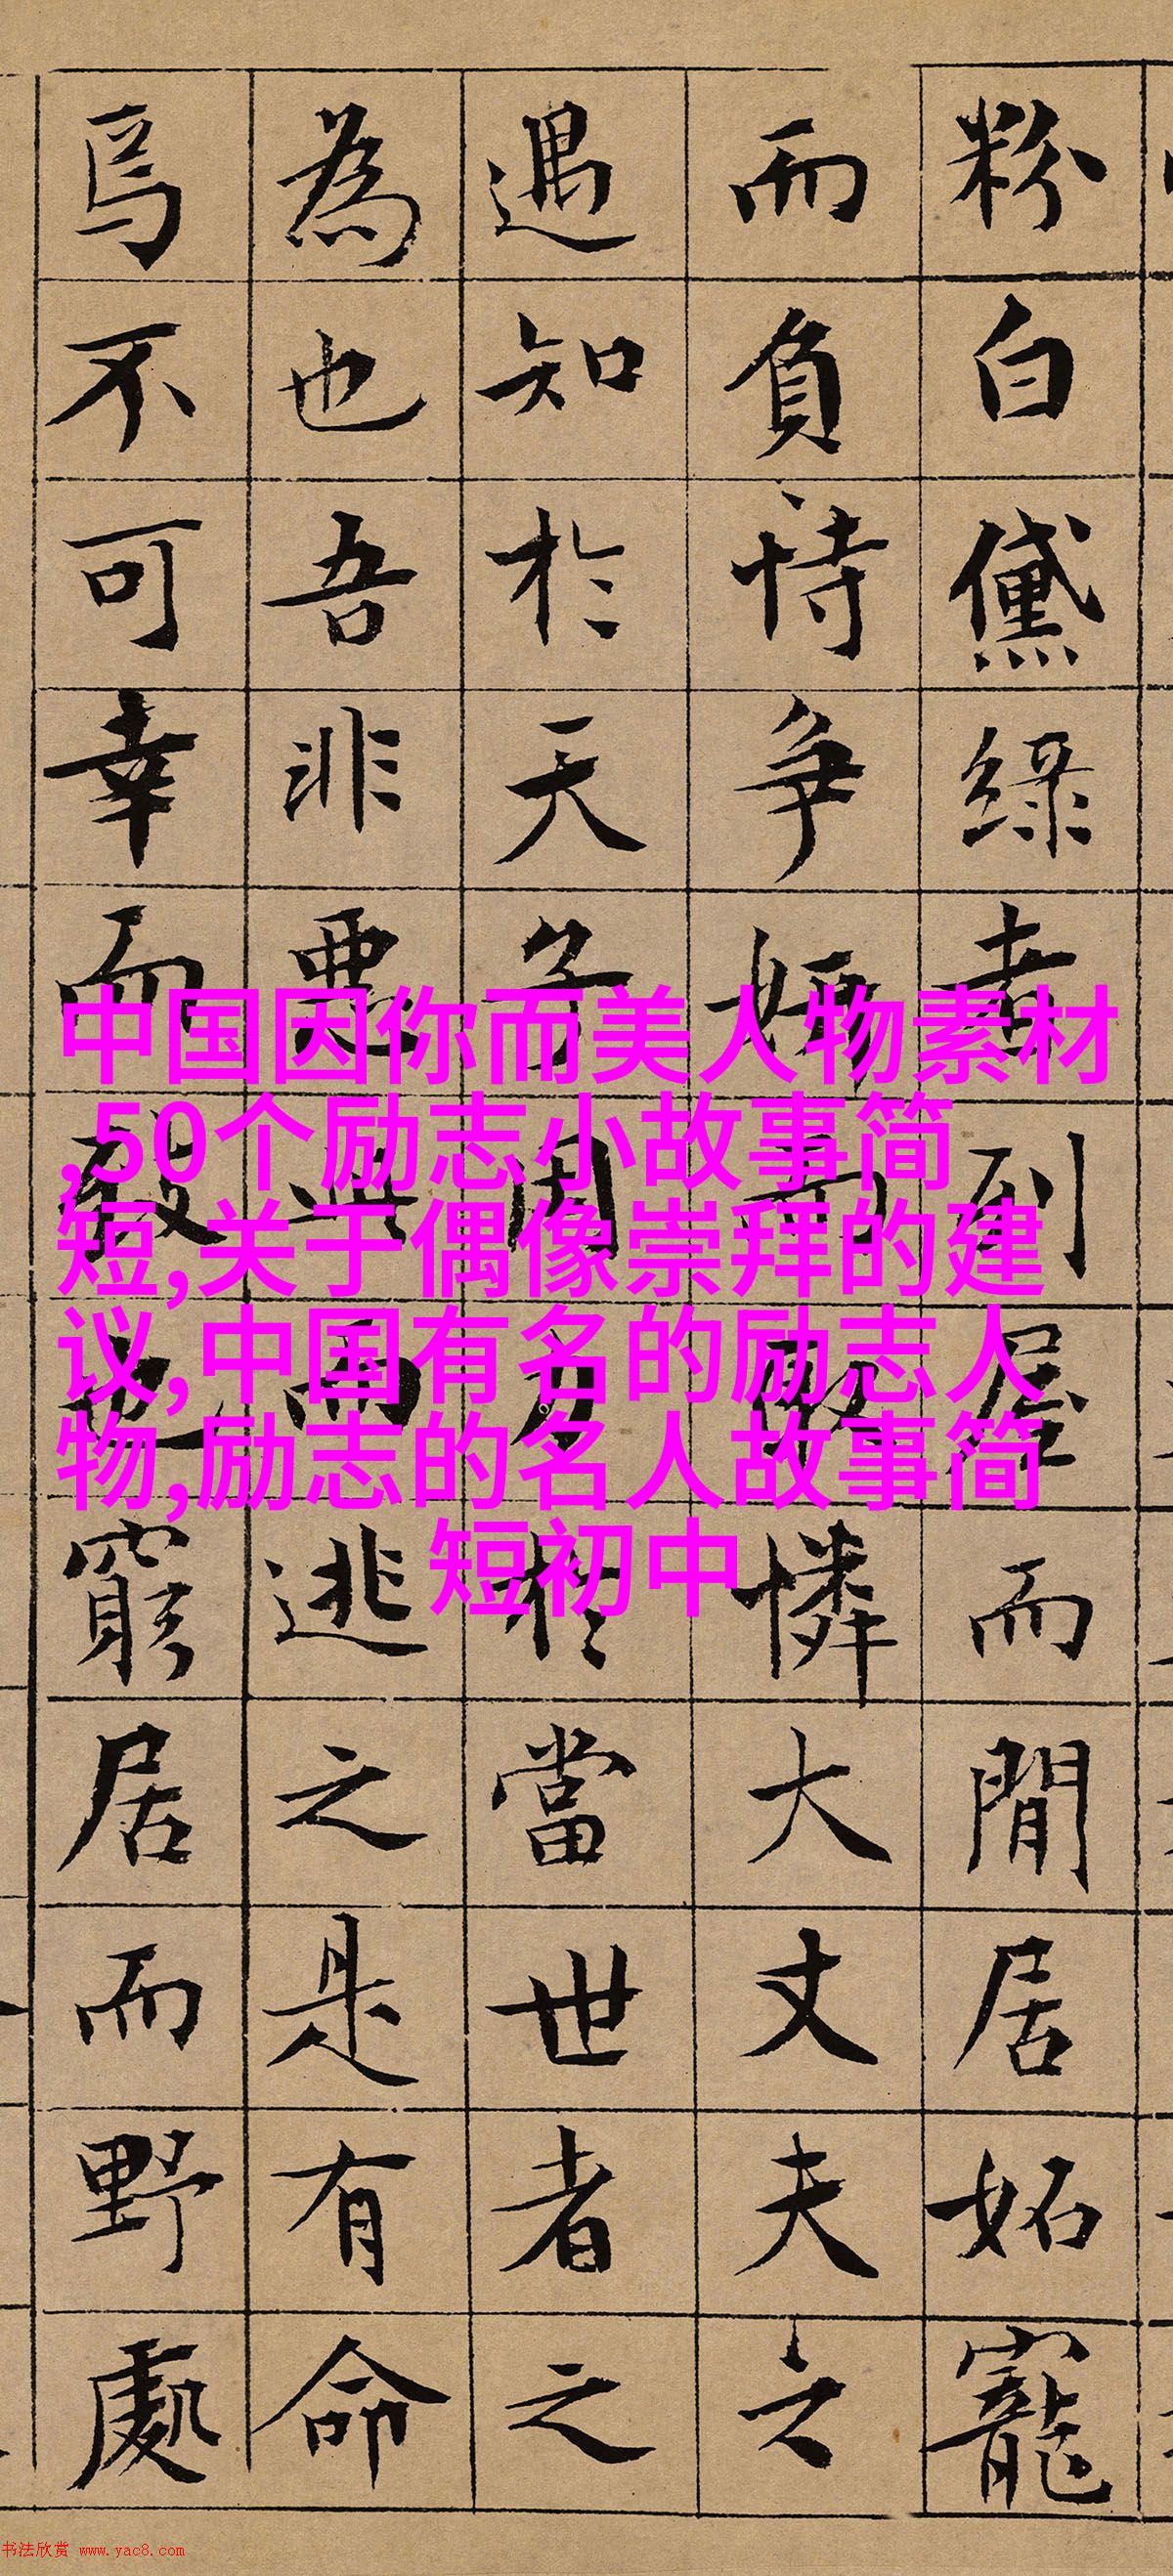 粉白黛綠者列屋而閒居妬寵
而負恃爭妍而取憐大丈夫之
遇知於天子用力於當世者之
為也吾非惡此而逃之是有命
焉不可幸而致也窮居而野處
中国因你而美人物素材
,50个励志小故事简
短,关于偶像崇拜的建
议,中国有名的励志人
物,励志的名人故事简
短初中
书法欣赏 www.yac8.com